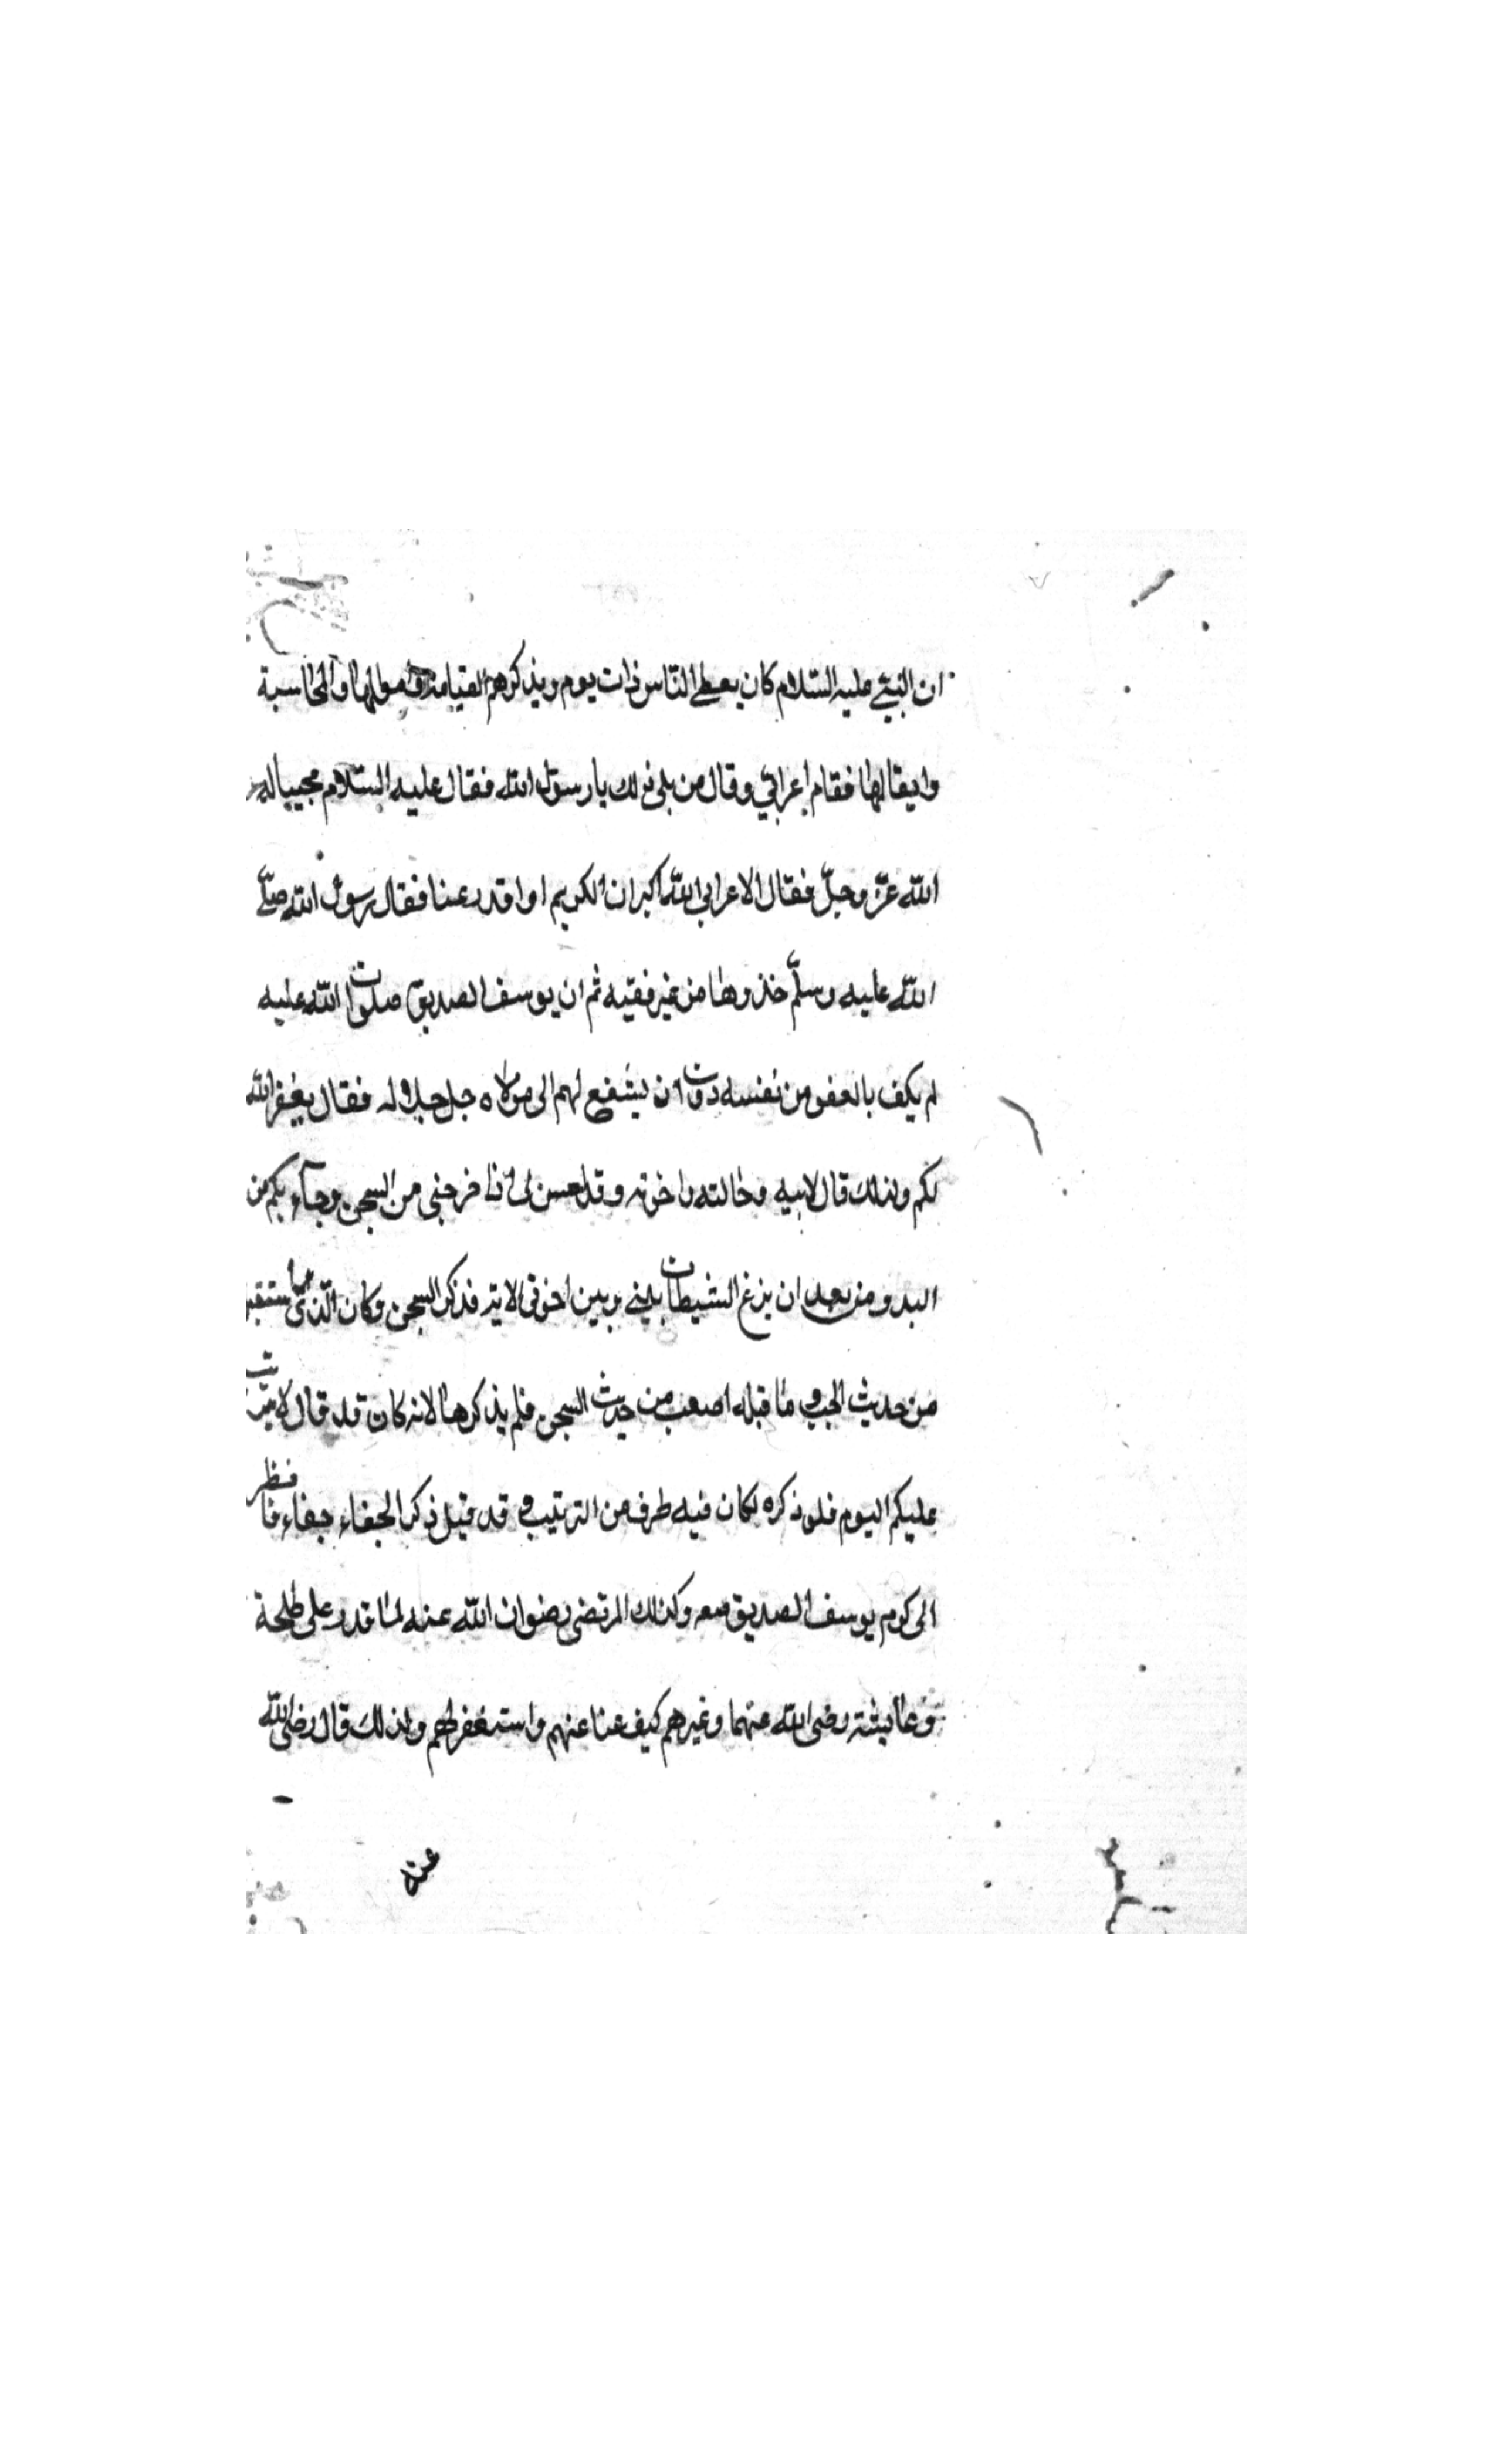 ان النبيّ عليه السّلام كان يعظ النّاس ذات يوم ويذكرهم القيامة واهوالها والمحاسبة
وايقالها فقام اعرابيّ وقال من يلى ذلك يا رسول الله فقال عليه السّلام مجيبا له
الله عزّ وجلّ فقال الاعرابي الله اكبر ان الكريم اذا قدر عفا فقال رسول الله صلّى
الله عليه وسلّم خذوها من غير فقيه ثم ان يوسف الصديق صلوات الله عليه
لم يكف بالعفو من نفسه دون ان يشفع لهم الى مولاه جل جلاله فقال يغفر الله
لكم ولذلك قال لابيه وخالته واخوته وقد احسن بى اذ اخرجنى من السجن وجآء بكم من
البدو من بعد ان نزغ الشيطان بينى وبين اخوتى الاية فذكر السجن وكان الّذى
من حديث الجب وما قبله اصعب من حديث السجن فلم يذكرها لانه كان قد قال لا تثريب
عليكم اليوم فلو ذكره لكان فيه طرف من التثريب وقد قيل ذكر الجفاء جفاء فانظر
الى كرم يوسف الصديق معه وكذلك المرتضى رضوان الله عنه لما قدر على طلحة
وعايشة رضى الله عنهما وغيرهم كيف عفا عنهم واستغفر لهم ولذلك قال رضى الله
عنه